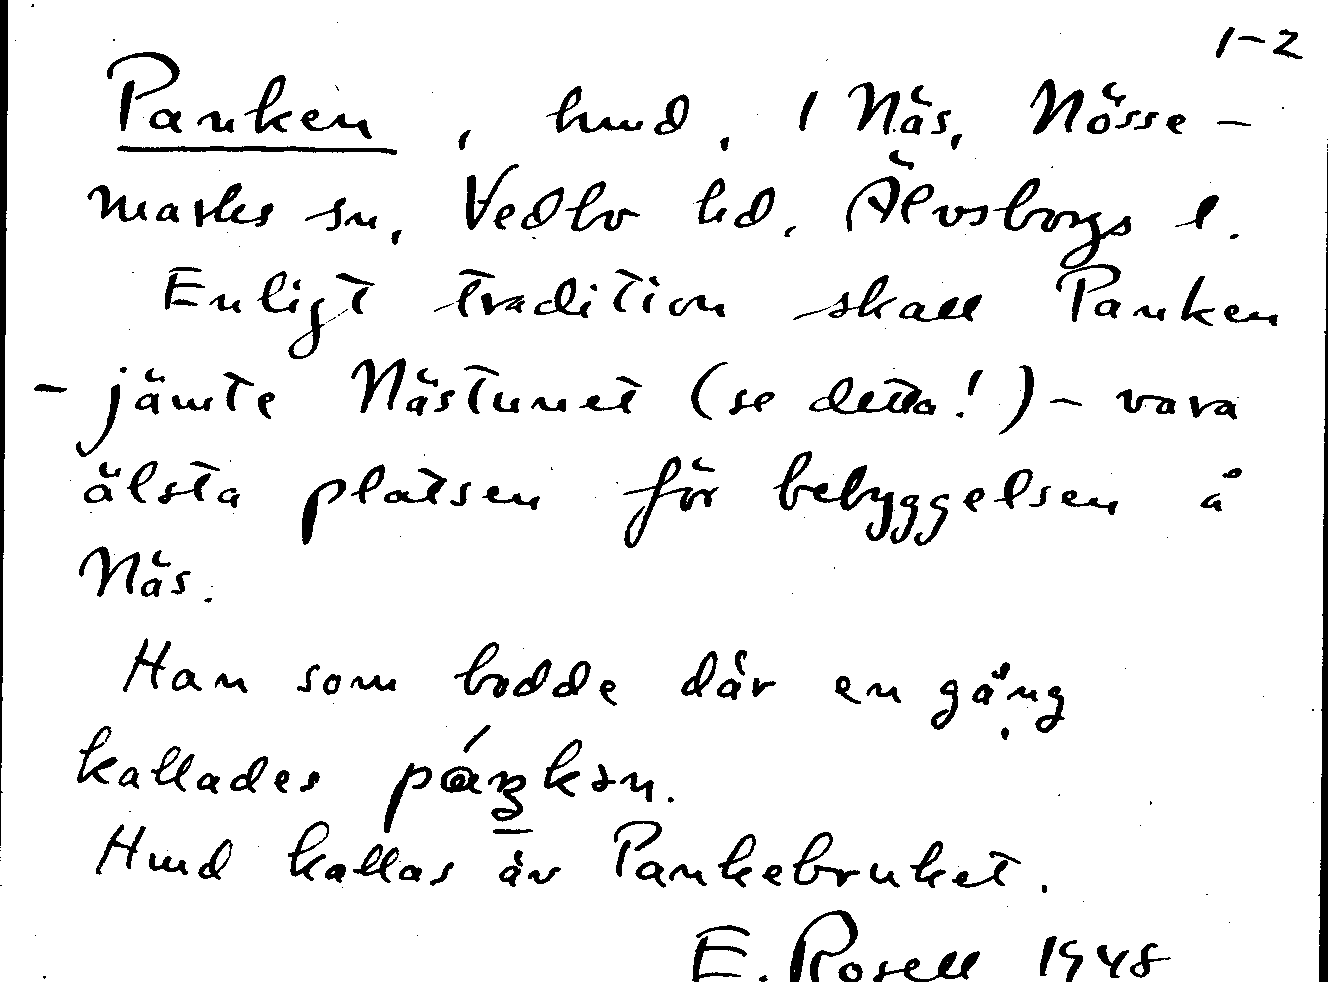 1-2
Panken, hmd, 1 Näs, Nösse-
marks sn, Vedbo hd, Älvsborgs l.
Enligt tradition skall Panken
- jämte Nästunet (se detta!) - vara
älsta platsen för bebyggelsen å
Näs.
Han som bodde där en gång
kallades
Hmd kallas äv Pankebruket.
E. Rosell 1948